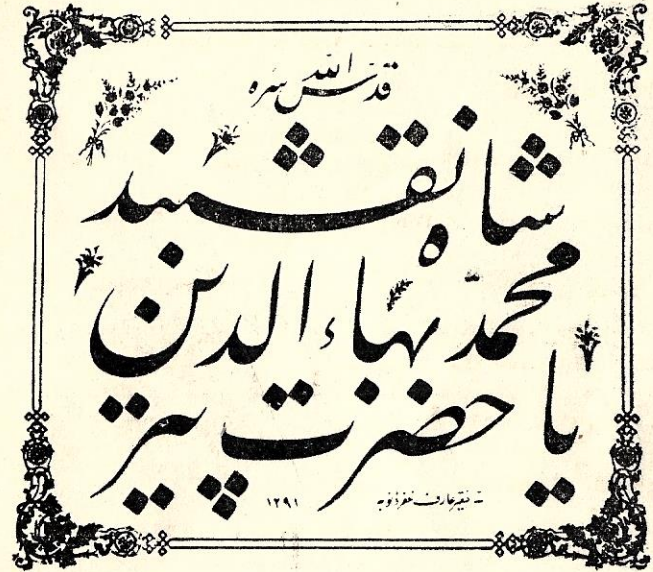 قدس الله سره
شاه نقشبند
محمد بهاء الدين
يا حضرت پير
فقير عارف غفر ذنوبه ١٢٩١